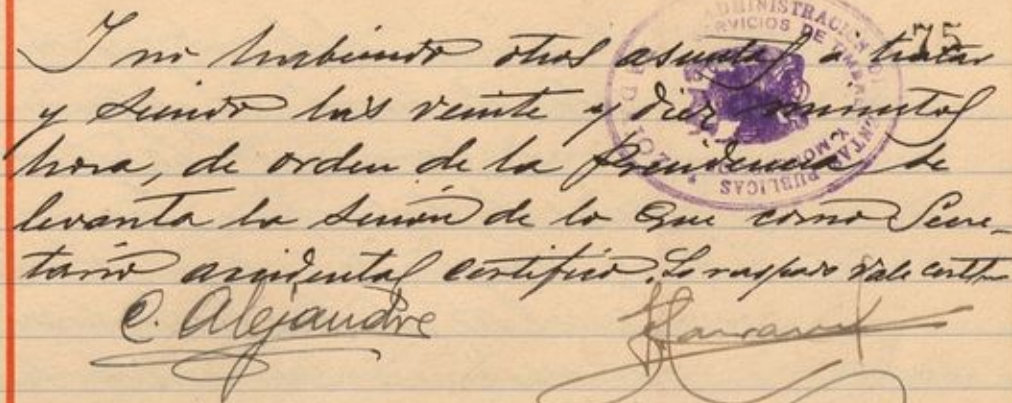 75
Y no habiendo otros asuntos a tratar
y siendo las veinte y diez minutos
hora, de orden de la Presidencia se
levanta la sesión de lo que como Secre-
tario accidental certifico. Lo raspado vale
C. Alejandre
ADMINISTRACION DE
SERVICIOS DE TIMBRE
PUBLICAS